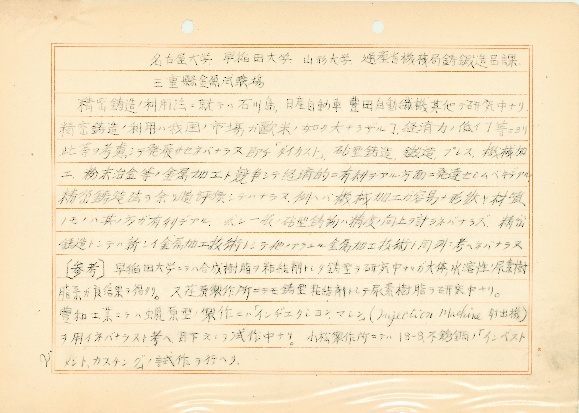 名古屋大学 早稲田大学 山形大学 通産省機械局鋳鍛造品課
三重縣窯業試験場
精密鋳造ノ利用法ニ就テハ石川島、日産自動車 豊田自動織機其他デ研究中ナリ
精密鋳造ノ利用ハ我国ノ市場ガ歐米ノ如ク大ナラザル 経済力ノ低イ
此等ヲ考慮シテ発展サセネバナラヌ 即チ「ダイカスト」、砂型鋳造、鍛造、プレス、機械加
工、粉末冶金等ノ金属加工ト競争シテ経済的ニ有利デアル方面ニ発達セシムベキデアル
精密鋳造法ノ余リ 評價シテハナラヌ、例ヘバ機械加工ガ容易ナ形状ヤ材質
ノモノハ其ノ方ガ有利デアル、又一般ノ砂型鋳物ノ精度ノ向上ヲ計ラネバナラヌ、精密
鋳造トシテハ新シイ金属加工技術トシテ他ノアラユル金属加工技術ト同列ニ考ヘネバナラヌ
〔参考〕 早稲田大学ニテハ合成樹脂ヲ粘結剤トシタ鋳型ヲ研究中ナルガ大体水溶性ノ尿素樹
脂系ガ良結果ヲ得タリ。又 製作所ニテモ鋳型粘結剤トシテ尿素樹脂ヲ研究中ナリ。
豊和工業ニテハ蝋原型ノ製作ニハ「インヂエクシヨンマシン」(Injection Machine 射出機)
ヲ用イネバナラヌト考ヘ、目下 試作中ナリ。小松製作所ニテハ 18-8不銹鋼ノ「インベスト
メント、カスチング」ノ試作ヲ行ヘリ。